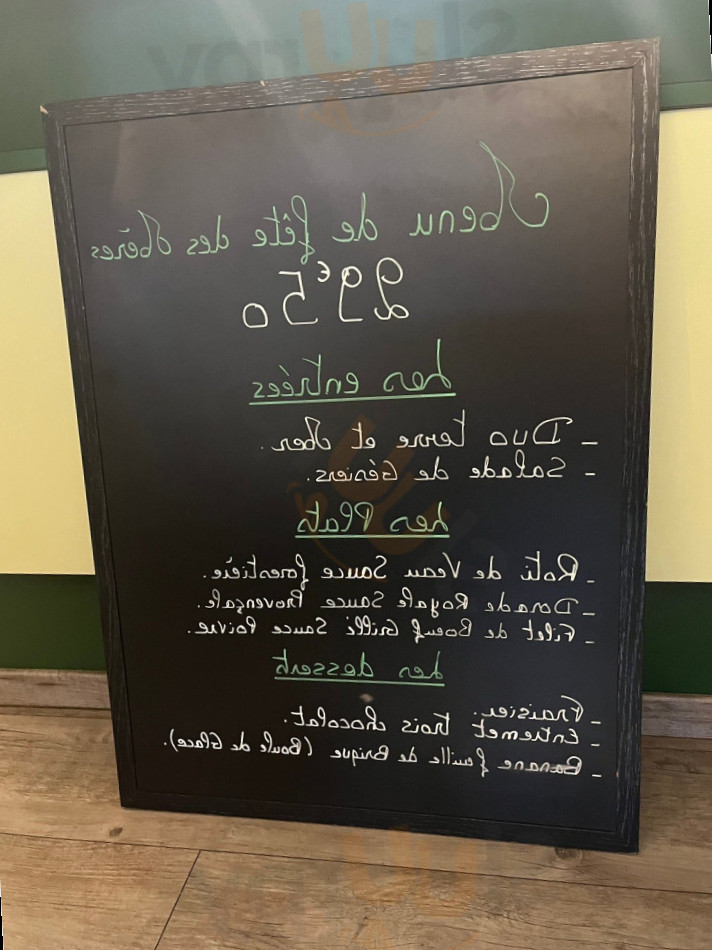 Menu de fête des Mères
29€50
Les entrées
- Duo terre et Mer.
- Salade de Gésiers.
Les Plats
- Roti de Veau Sauce forestière.
- Dorade Royale Sauce Provençale.
- Filet de Boeuf Grillé Sauce Poivre.
Les desserts
- Fraisier.
- Entremet trois chocolat.
- Banane feuille de Brique (Boule de Glace).